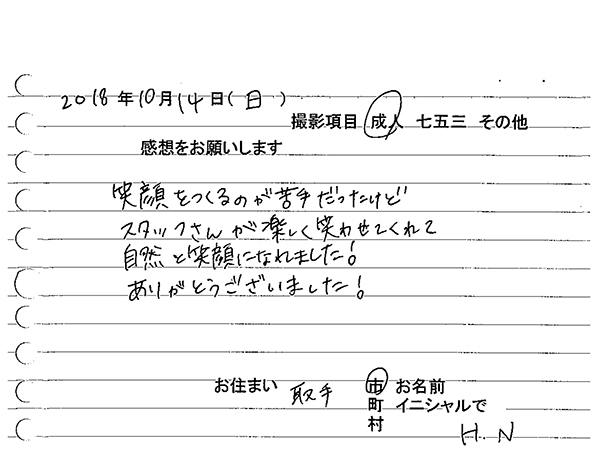 2018年10月14日(日)
撮影項目 成人 七五三 その他
感想をお願いします
笑顔をつくるのが苦手だったけど
スタッフさんが楽しく笑わせてくれて
自然と笑顔になれました!
ありがとうございました!
お住まい 取手 市 お名前
町 イニシャルで
村 H.N